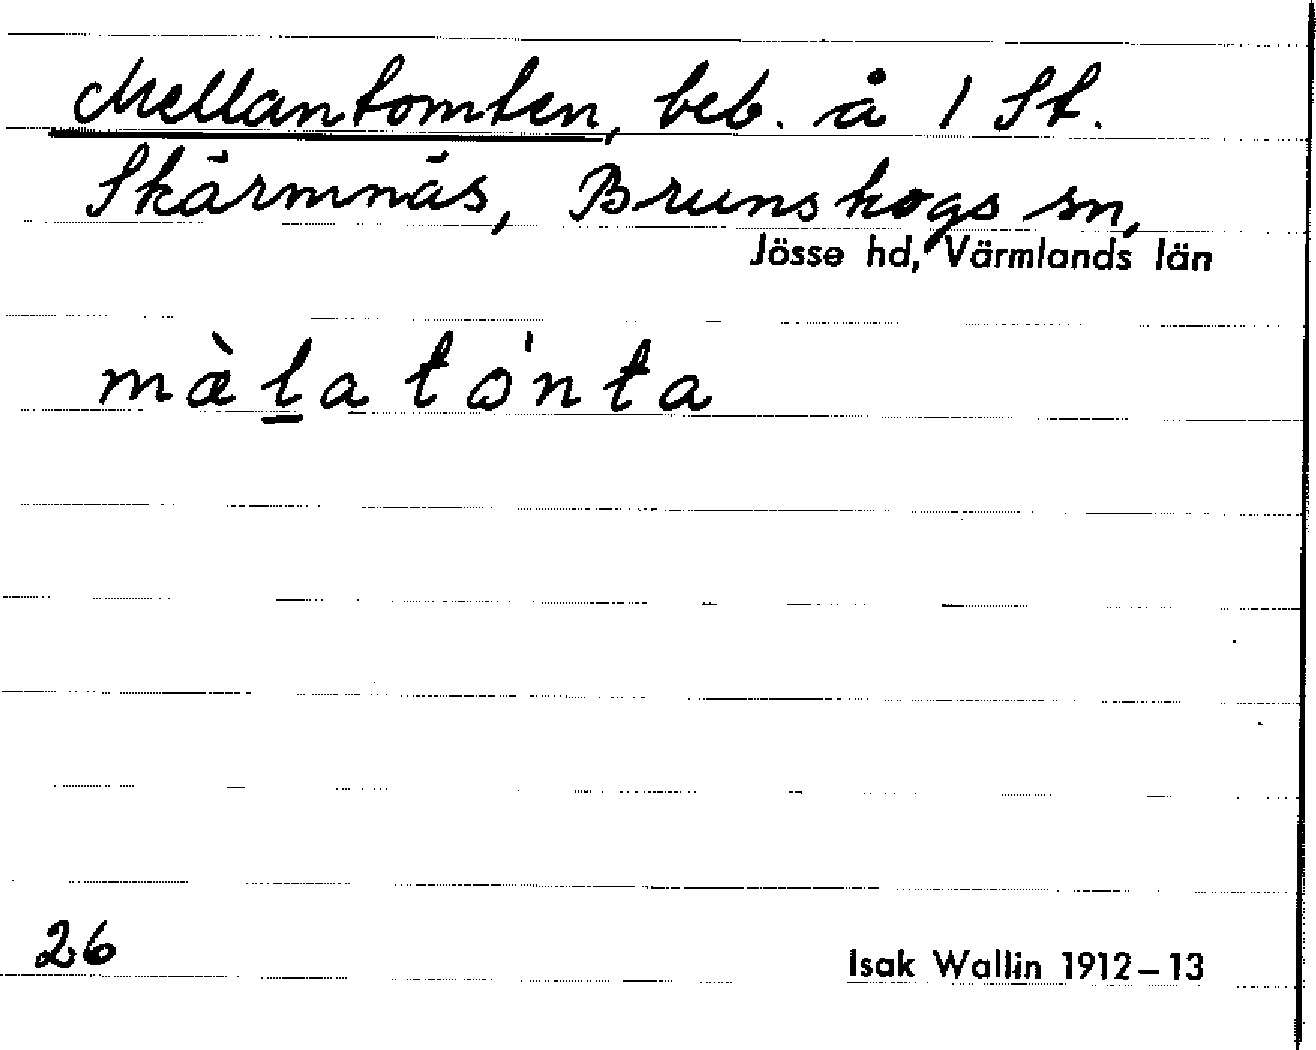 Mellantomten, beb. å 1 St.
Skärmnäs, Brunskogs sn,
Jösse hd, Värmlands län
mæ̀l̲a tɷ́nta
26
Isak Wallin 1912–13